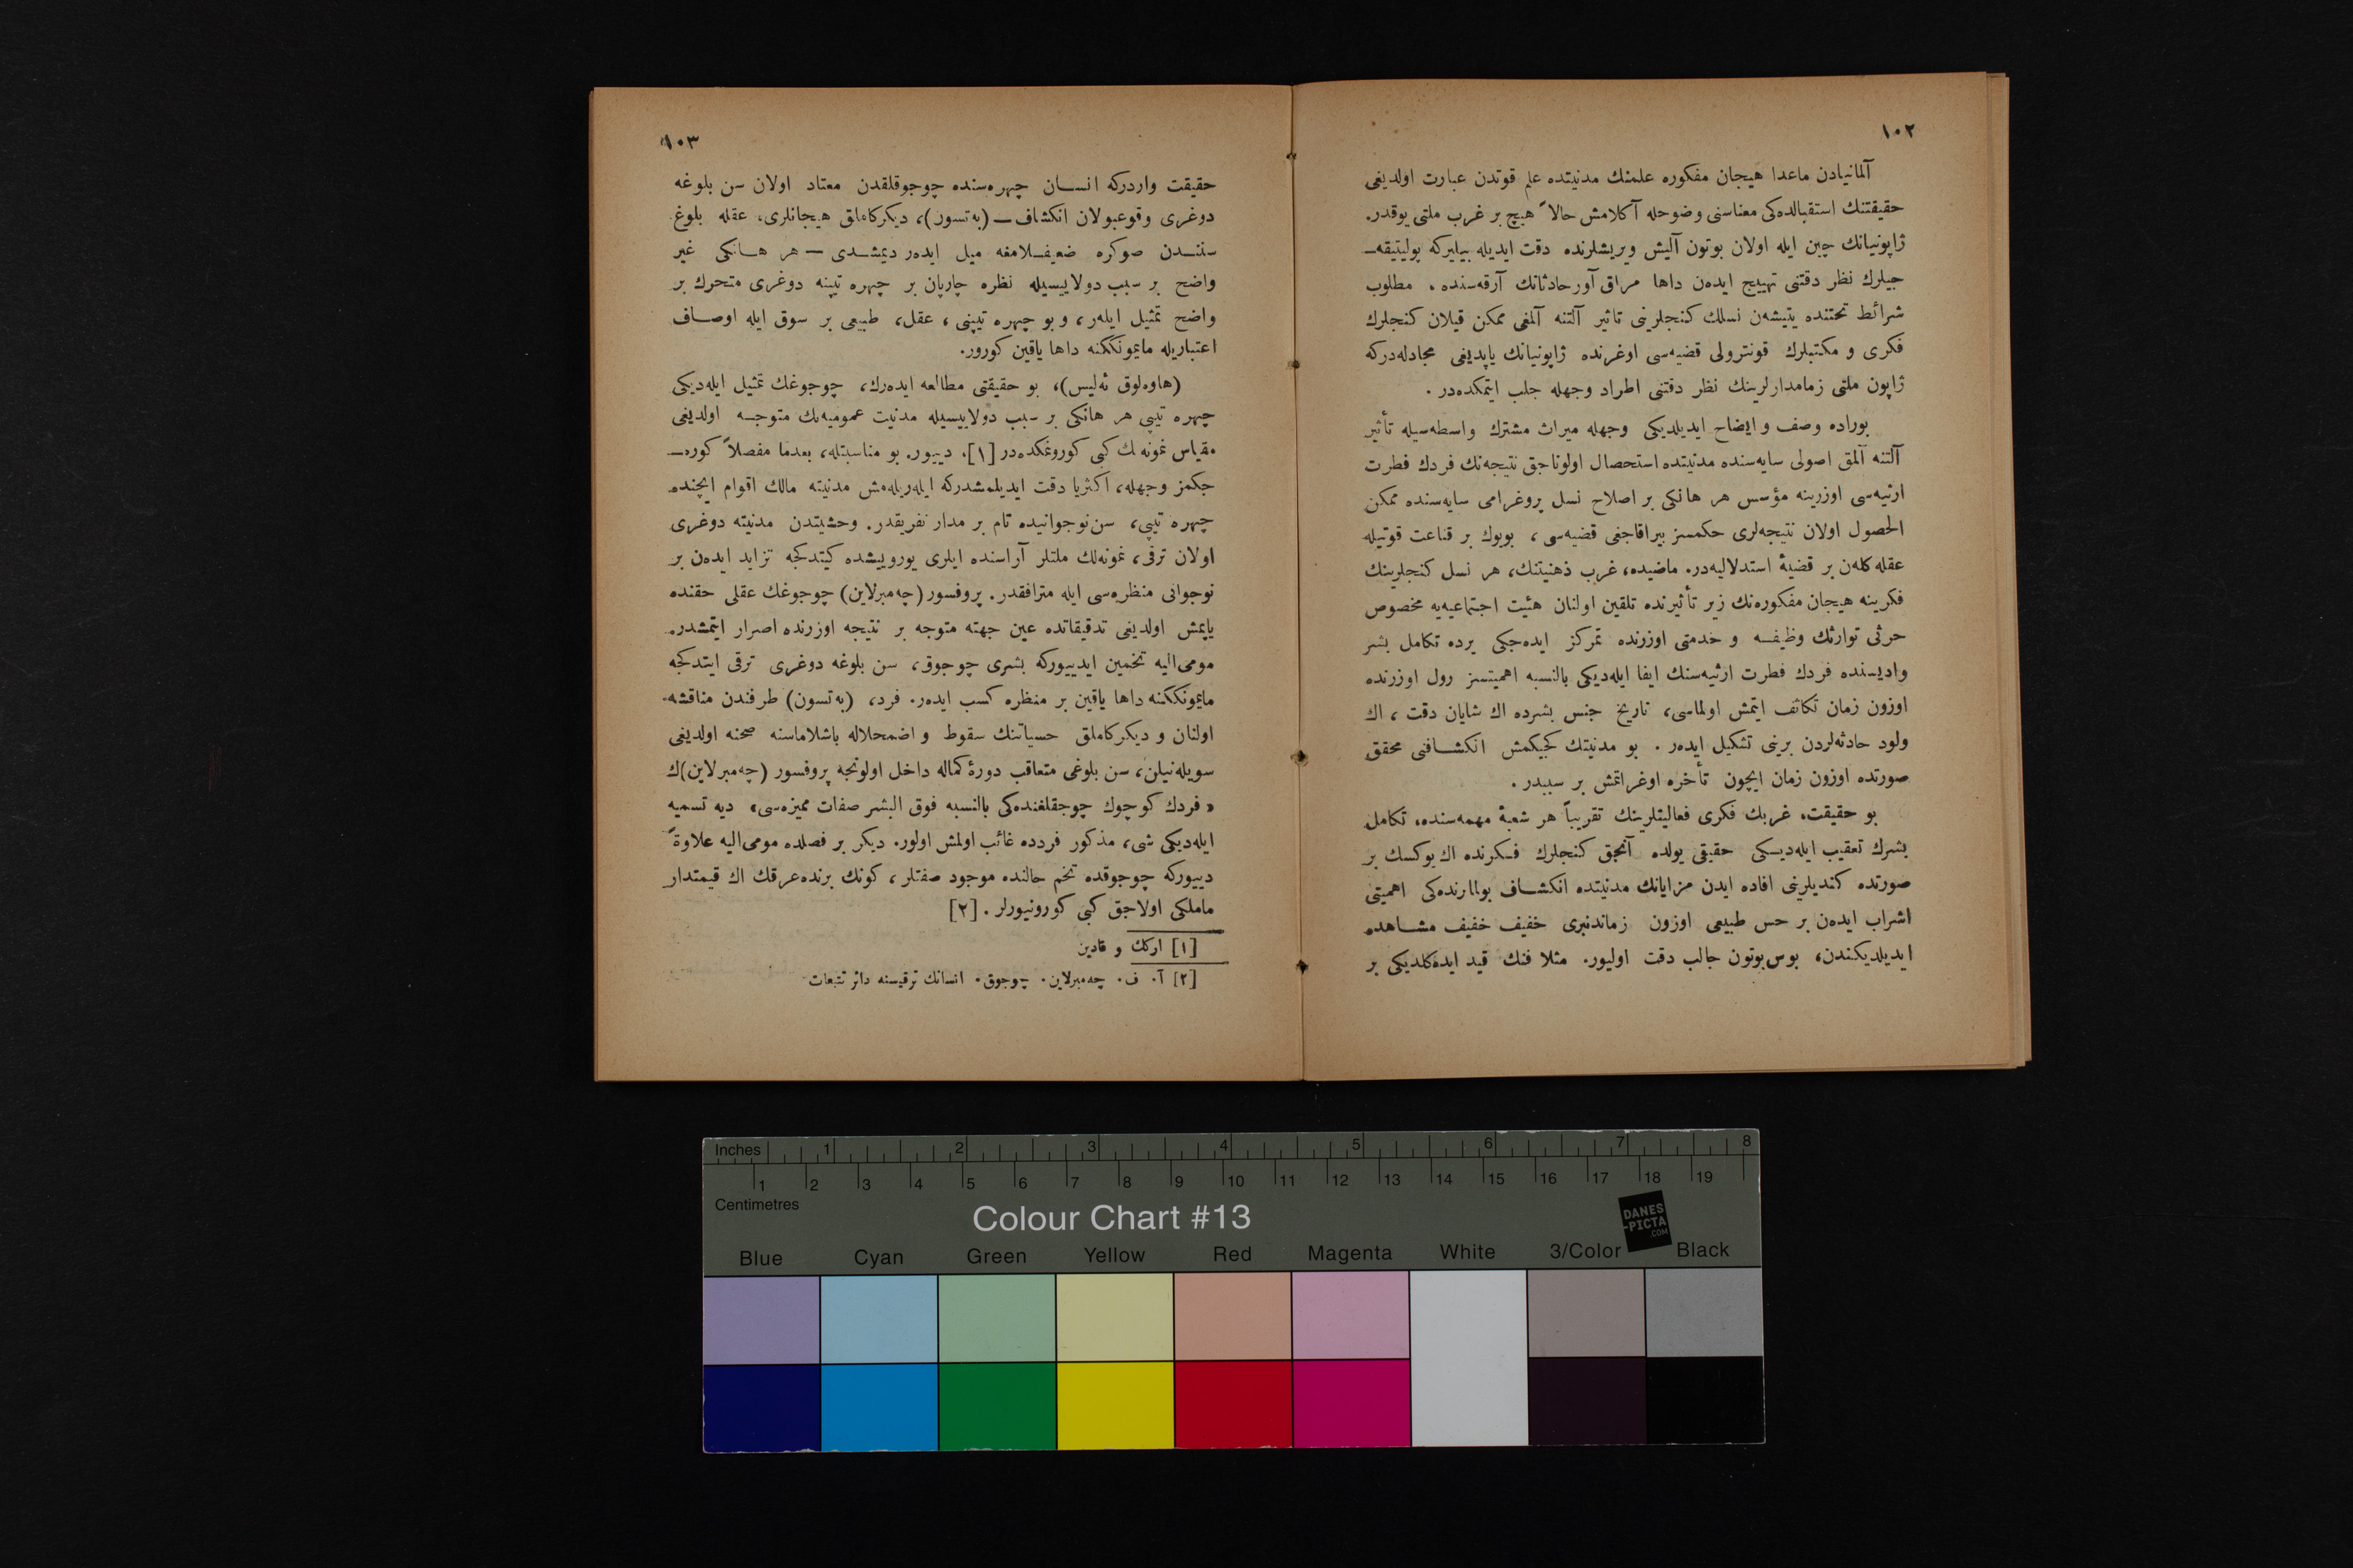 ١٠٢
آلمانیادن ماعدا هیجان مفکوره علمنك مدنیتده علم قوتدن عبارت اولدیغی
حقیقتنك استقبالده‌کی معناسنی وضوحله آکلامش حالاً هیچ بر غرب ملتی یوقدر.
ژاپونیانك چین ایله اولان بوتون آلیش ویریشلرنده دقت ایدیله بیلیرکه پولیتیقه‌ـ
جیلرك نظر دقتنی تهییج ایده‌ن داها مراق آور حادثاتك آرقه‌سنده ، مطلوب
شرائط تحتنده یتیشه‌ن نسلك کنجلرینی تاثیر آلتنه آلمغی ممکن قیلان کنجلرك
فکری و مکتبلرك قونترولی قضیه‌سی اوغرنده ژاپونیانك یاپدیغی مجادله‌درکه
ژاپون ملتی زمامدارلرینك نظر دقتنی اطراد وجهله جلب ایتمکده‌در .
بوراده وصف و ایضاح ایدیلدیکی وجهله میراث مشترك واسطه‌سیله تأثیر
آلتنه آلمق اصولی سایه‌سنده مدنیتده استحصال اولوناجق نتیجه‌نك فردك فطرت
ارثیه‌سی اوزرینه مؤسس هر هانکی بر اصلاح نسل پروغرامی سایه‌سنده ممکن
الحصول اولان نتیجه‌لری حکمسز بیراقاجغی قضیه‌سی ، بویوك بر قناعت قوتیله
عقله کله‌ن بر قضیهٔ استدلالیه‌در. ماضیده، غرب ذهنیتنك، هر نسل کنجلرینك
فکرینه هیجان مفکوره‌نك زیر تأثیرنده تلقین اولنان هیئت اجتماعیه‌یه مخصوص
حرثی توارثك وظیفـه و خدمتی اوزرنده تمرکز ایده‌جکی یرده تکامل بشر
وادیسنده فردك فطرت ارثیه‌سنك ایفا ایله‌دیکی بالنسبه اهمیتسز رول اوزرنده
اوزون زمان تکاثف ایتمش اولماسی، تاریخ جنس بشرده اك شایان دقت ، اك
ولود حادثه‌لردن برینی تشکیل ایده‌ر . بو مدنیتك کجیکمش انکشـافنی محقق
صورتده اوزون زمان ایچون تأخره اوغراتمش بر سببدر .
بو حقیقت، غربك فکری فعالیتلرینك تقریباً هر شعبهٔ مهمه‌سنده، تکامل
بشرك تعقیب ایله‌دیـکی حقیقی یولده آنجق کنجلرك فـکرنده اك یوکسك بر
صورتده کندیلرینی افاده ایدن مزایانك مدنیتده انکشـاف بولمالرنده‌کی اهمیتی
اشراب ایده‌ن بر حس طبیعی اوزون زماندنبری خفیف خفیف مشـاهده
ایدیلدیکندن، بوس‌بوتون جالب دقت اولیور. مثلا فنك قید ایده‌کلدیکی بر
١٠٣
حقیقت واردرکه انسـان چهره‌سنده چوجوقلقدن معتاد اولان سن بلوغه
دوغری وقوعبولان انکشاف ــ (به‌تسون)، دیکرکاملق هیجانلری، عقله بلوغ
سننـدن صوکره ضعیفـلامغه میل ایده‌ر دیمشـدی ــ هر هـانکی غیر
واضح بر سبب دولاییسیله نظره چارپان بر چهره تیپنه دوغری متحرك بر
واضح تمثیل ایلەر ، و بو چهره تیپنی ، عقل، طبیعی بر سوق ایله اوصـاف
اعتباریله مایمونککنه داها یاقین کورور.
(هاوه‌لوق ئه‌لیس)، بو حقیقتی مطالعه ایده‌رك، چوجوغك تمثیل ایله‌دیکی
چهره تیپی هر هانکی بر سبب دولاییسیله مدنیت عمومیه‌نك متوجـه اولدیغی
مقیاس نمونه‌لك کبی کورونمکده‌در [١]. دییور. بو مناسبتله، بعدما مفصلاً کوره‌ـ
جکمز وجهله، اکثریا دقت ایدیلمشدرکه ایله‌ریله‌مش مدنیته مالك اقوام ایچنده
چهره تیپی، سن‌نوجوانیده تام بر مدار تفریقدر. وحشیتدن مدنیته دوغری
اولان ترقی، نمونه‌لك ملتلر آراسنده ایلری یورویشده کیتدکجه تزاید ایده‌ن بر
نوجوانی منظره‌سی ایله مترافقدر. پروفسور (چه‌مبرلاین) چوجوغك عقلی حقنده
یاپمش اولدیغی تدقیقاتده عین جهته متوجه بر نتیجه اوزرنده اصرار ایتمشدر.
مومی‌الیه تخمین ایدییورکه بشری چوجوق، سن بلوغه دوغری ترقی ایتدکجه
مایمونککنه داها یاقین بر منظره کسب ایده‌ر. فرد، (به‌تسون) طرفندن مناقشه
اولنان و دیکرکاملق حسیاتنك سقوط و اضمحلاله باشلاماسنه صحنه اولدیغی
سویله‌نیلن، سن بلوغی متعاقب دورهٔ کماله داخل اولونجه پروفسور (چه‌مبرلاین)ك
« فردك کوچوك چوجقلغنده‌کی بالنسبه فوق البشر صفات ممیزه‌سی » دیه تسمیه
ایله‌دیکی شی، مذکور فردده غائب اولمش اولور. دیکر بر فصلده مومی‌الیه علاوةً
دییورکه چوجوقده تخم حالنده موجود صفتلر ، کونك برنده عرقك اك قیمتدار
ماملکی اولاجق کبی کورونیورلر . [٢]
[١] ارکك و قادین
[٢] آ. ف. چه‌مبرلاین. چوجوق. انسانك ترقیسنه دائر تتبعات
Inches 1 2 3 4 5 6 7 8
1 2 3 4 5 6 7 8 9 10 11 12 13 14 15 16 17 18 19
Centimetres
Colour Chart #13
DANES
-PICTA
.COM
Blue Cyan Green Yellow Red Magenta White 3/Color Black